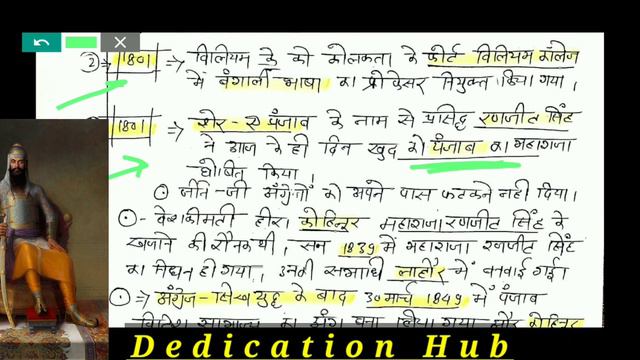 ② ⇒ 1801 ⇒ विलियम के को कोलकता के फोर्ट विलियम कॉलेज
में बंगाली भाषा का प्रोफेसर नियुक्त किया गया।
1801 ⇒ शेर-ए-पंजाब के नाम से प्रसिद्ध रणजीत सिंह
ने आज के ही दिन खुद को पंजाब का महाराजा
घोषित किया।
⊙ जीते-जी अंग्रेजों को अपने पास फटकने नही दिया।
⊙ - बेशकीमती हीरा कोहिनूर महाराजा रणजीत सिंह के
खजाने की रौनक थी, सन 1839 में महाराजा रणजीत सिंह
का निधन हो गया, उनकी समाधि लाहौर में बनवाई गई।
⊙ ⇒ अंग्रेज-सिख युद्ध के बाद 30 मार्च 1849 में पंजाब
ब्रिटिश साम्राज्य का अंग बना लिया गया और कोहिनूर
Dedication Hub